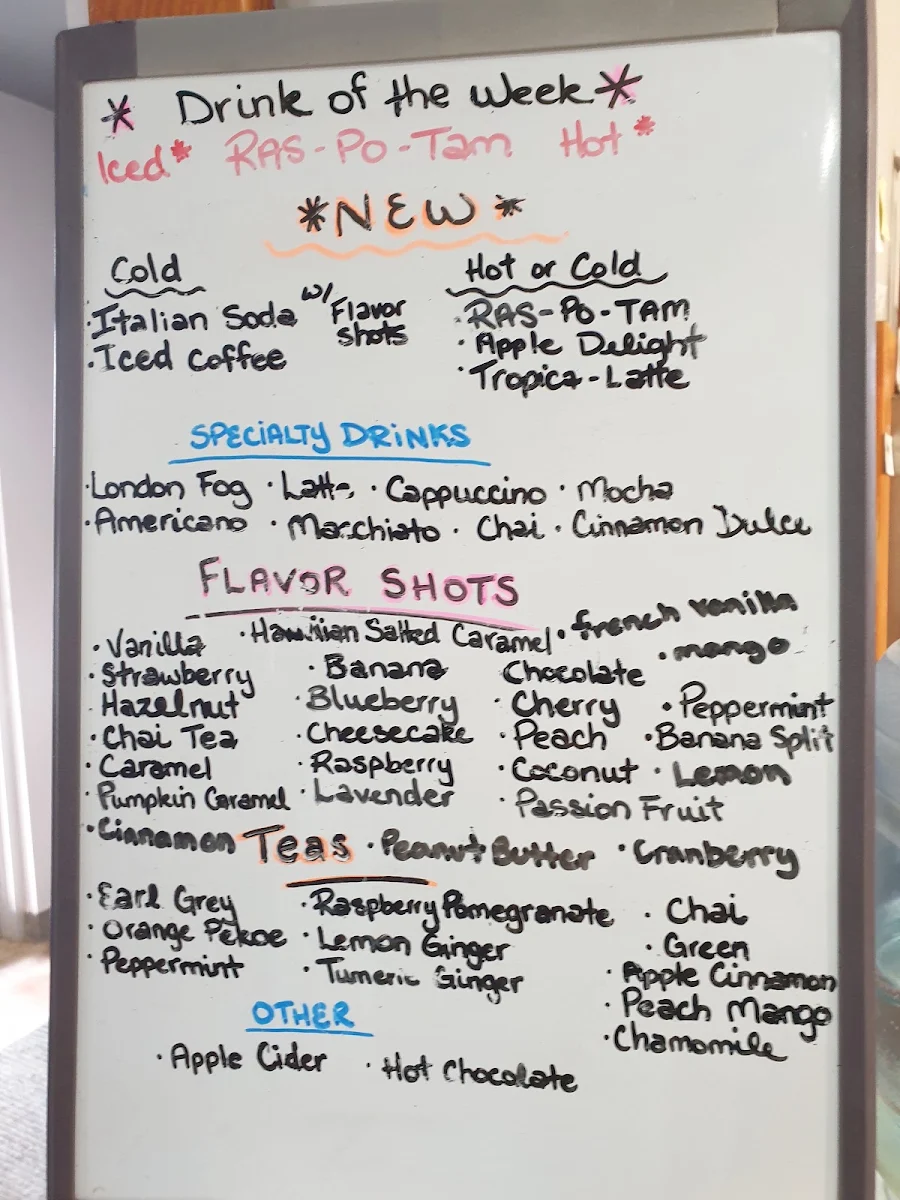 * Drink of the Week *
Iced* RAS-Po-Tam Hot*
*NEW*
Cold
·Italian Soda w/ Flavor shots
·Iced Coffee
Hot or Cold
·RAS-Po-TAM
·Apple Delight
·Tropica-Latte
SPECIALTY DRINKS
·London Fog ·Latte ·Cappuccino ·Mocha
·Americano ·Macchiato ·Chai ·Cinnamon Dulce
FLAVOR SHOTS
·Vanilla ·Hawaiian Salted Caramel ·french vanilla
·Strawberry ·Banana Chocolate ·mango
Hazelnut ·Blueberry ·Cherry ·Peppermint
·Chai Tea ·Cheesecake ·Peach ·Banana Split
·Caramel ·Raspberry ·Coconut ·Lemon
·Pumpkin Caramel ·Lavender ·Passion Fruit
·Cinnamon ·Peanut Butter ·Cranberry
Teas
·Earl Grey ·Raspberry Pomegranate ·Chai
·Orange Pekoe ·Lemon Ginger ·Green
·Peppermint ·Tumeric Ginger ·Apple Cinnamon
·Peach Mango
·Chamomile
OTHER
·Apple Cider ·Hot Chocolate